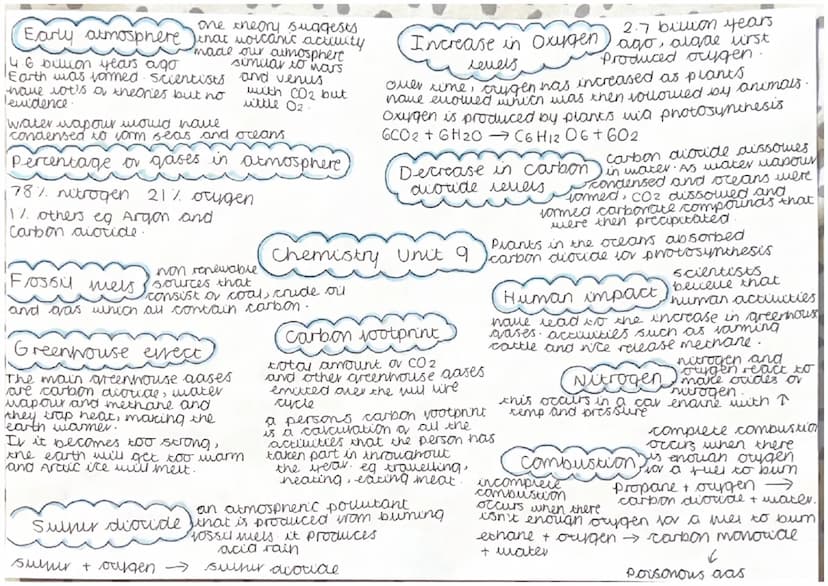 Early atmosphere
one theory suggests
that volcanic activity
made our atmosphere
similar to Mars
and venus
with CO2 but
little O2.
4.6 billion years ago
Earth was formed. Scientists
have lot's of theories but no
evidence.
water vapour would have
condensed to form seas and oceans
Increase in Oxygen
levels
2.7 billion years
ago, algae first
Produced oxygen.
over time, oxygen has increased as plants
have evolved which was then followed by animals.
Oxygen is produced by plants via photosynthesis
6CO2 + 6H2O → C6H12O6 + 6O2
Percentage of gases in atmosphere
78% nitrogen 21% oxygen
1% others eg Argon and
Carbon dioxide.
Decrease in Carbon
dioxide levels
Carbon dioxide dissolves
in water. As water vapour
condensed and oceans were
formed, CO2 dissolved and
formed carbonate compounds that
were then precipitated.
Plants in the oceans absorbed
carbon dioxide for photosynthesis
Chemistry Unit 9
Fossil fuels
non renewable
sources that
consist of coal, crude oil
and gas which all contain carbon.
Human impact
scientists
believe that
human activities
have lead to the increase in greenhouse
gases. activities such as farming
cattle and rice release methane.
Greenhouse effect
The main greenhouse gases
are carbon dioxide, water
vapour and methane and
they trap heat, making the
earth warmer.
If it becomes too strong,
the earth will get too warm
and Arctic ice will melt.
Carbon footprint
total amount of CO2
and other greenhouse gases
emitted over the full life
cycle
a persons carbon footprint
is a calculation of all the
activities that the person has
taken part in throughout
the year. eg travelling,
heating, eating meat.
Nitrogen
nitrogen and
oxygen react to
make oxides of
nitrogen.
this occurs in a car engine with ↑
temp and pressure
Combustion
complete combustion
occurs when there
is enough oxygen
for a fuel to burn
Propane + oxygen →
carbon dioxide + water.
incomplete
combustion
occurs when there
isn't enough oxygen for a fuel to burn
ethane + oxygen → carbon monoxide
+ water
↓
Poisonous gas
Sulfur dioxide
an atmospheric pollutant
that is produced from burning
fossil fuels it produces
acid rain
sulfur + oxygen → sulfur dioxide